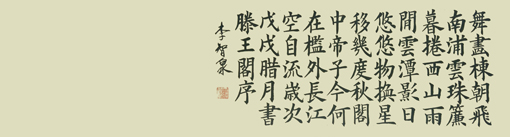 舞畫棟朝飛
南浦雲珠簾
暮捲西山雨
閒雲潭影日
悠悠物換星
移幾度秋閣
中帝子今何
在檻外長江
空自流歲次
戊戌腊月書
滕王閣序
李智泉